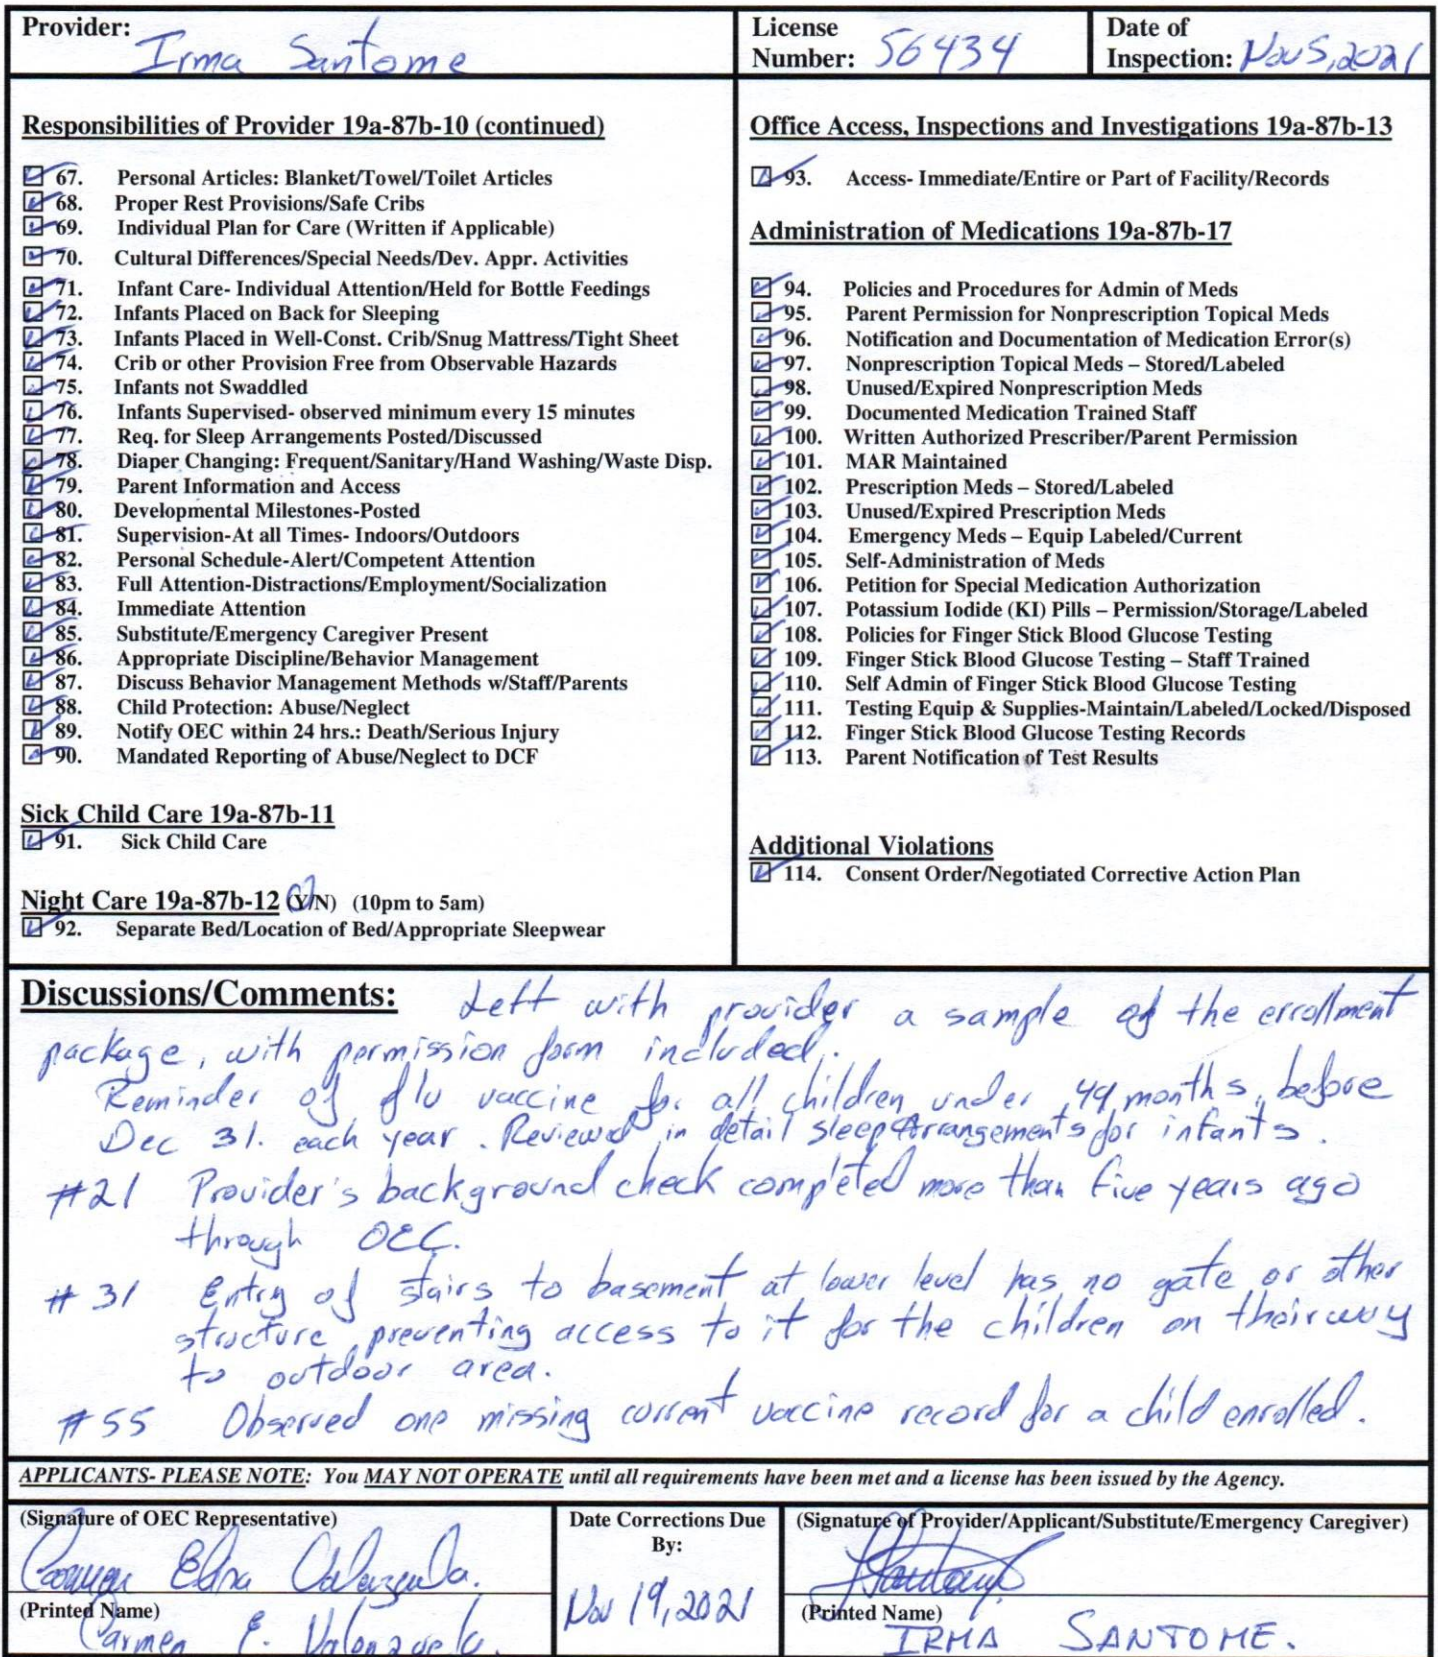 Provider: Irma Santome
License Number: 56434
Date of Inspection: Nov 5, 2021
Responsibilities of Provider 19a-87b-10 (continued)
67. Personal Articles: Blanket/Towel/Toilet Articles
68. Proper Rest Provisions/Safe Cribs
69. Individual Plan for Care (Written if Applicable)
70. Cultural Differences/Special Needs/Dev. Appr. Activities
71. Infant Care- Individual Attention/Held for Bottle Feedings
72. Infants Placed on Back for Sleeping
73. Infants Placed in Well-Const. Crib/Snug Mattress/Tight Sheet
74. Crib or other Provision Free from Observable Hazards
75. Infants not Swaddled
76. Infants Supervised- observed minimum every 15 minutes
77. Req. for Sleep Arrangements Posted/Discussed
78. Diaper Changing: Frequent/Sanitary/Hand Washing/Waste Disp.
79. Parent Information and Access
80. Developmental Milestones-Posted
81. Supervision-At all Times- Indoors/Outdoors
82. Personal Schedule-Alert/Competent Attention
83. Full Attention-Distractions/Employment/Socialization
84. Immediate Attention
85. Substitute/Emergency Caregiver Present
86. Appropriate Discipline/Behavior Management
87. Discuss Behavior Management Methods w/Staff/Parents
88. Child Protection: Abuse/Neglect
89. Notify OEC within 24 hrs.: Death/Serious Injury
90. Mandated Reporting of Abuse/Neglect to DCF
Sick Child Care 19a-87b-11
91. Sick Child Care
Night Care 19a-87b-12 (Y/N) (10pm to 5am)
92. Separate Bed/Location of Bed/Appropriate Sleepwear
Office Access, Inspections and Investigations 19a-87b-13
93. Access- Immediate/Entire or Part of Facility/Records
Administration of Medications 19a-87b-17
94. Policies and Procedures for Admin of Meds
95. Parent Permission for Nonprescription Topical Meds
96. Notification and Documentation of Medication Error(s)
97. Nonprescription Topical Meds – Stored/Labeled
98. Unused/Expired Nonprescription Meds
99. Documented Medication Trained Staff
100. Written Authorized Prescriber/Parent Permission
101. MAR Maintained
102. Prescription Meds – Stored/Labeled
103. Unused/Expired Prescription Meds
104. Emergency Meds – Equip Labeled/Current
105. Self-Administration of Meds
106. Petition for Special Medication Authorization
107. Potassium Iodide (KI) Pills – Permission/Storage/Labeled
108. Policies for Finger Stick Blood Glucose Testing
109. Finger Stick Blood Glucose Testing – Staff Trained
110. Self Admin of Finger Stick Blood Glucose Testing
111. Testing Equip & Supplies-Maintain/Labeled/Locked/Disposed
112. Finger Stick Blood Glucose Testing Records
113. Parent Notification of Test Results
Additional Violations
114. Consent Order/Negotiated Corrective Action Plan
Discussions/Comments: Left with provider a sample of the errollment
package, with permission form included.
Reminder of flu vaccine for all children under 49 months, before
Dec 31. each year. Reviewed in detail sleep Arrangements for infants.
#21 Provider's background check completed more than five years ago
through OEC.
#31 Entry of stairs to basement at lower level has no gate or other
structure preventing access to it for the children on their way
to outdoor area.
#55 Observed one missing current vaccine record for a child enrolled.
APPLICANTS- PLEASE NOTE: You MAY NOT OPERATE until all requirements have been met and a license has been issued by the Agency.
(Signature of OEC Representative)
Carmen Elina Valenzuela.
(Printed Name)
Carmen E. Valenzuela.
Date Corrections Due
By:
Nov 19, 2021
(Signature of Provider/Applicant/Substitute/Emergency Caregiver)
(Printed Name)
IRMA SANTOME.